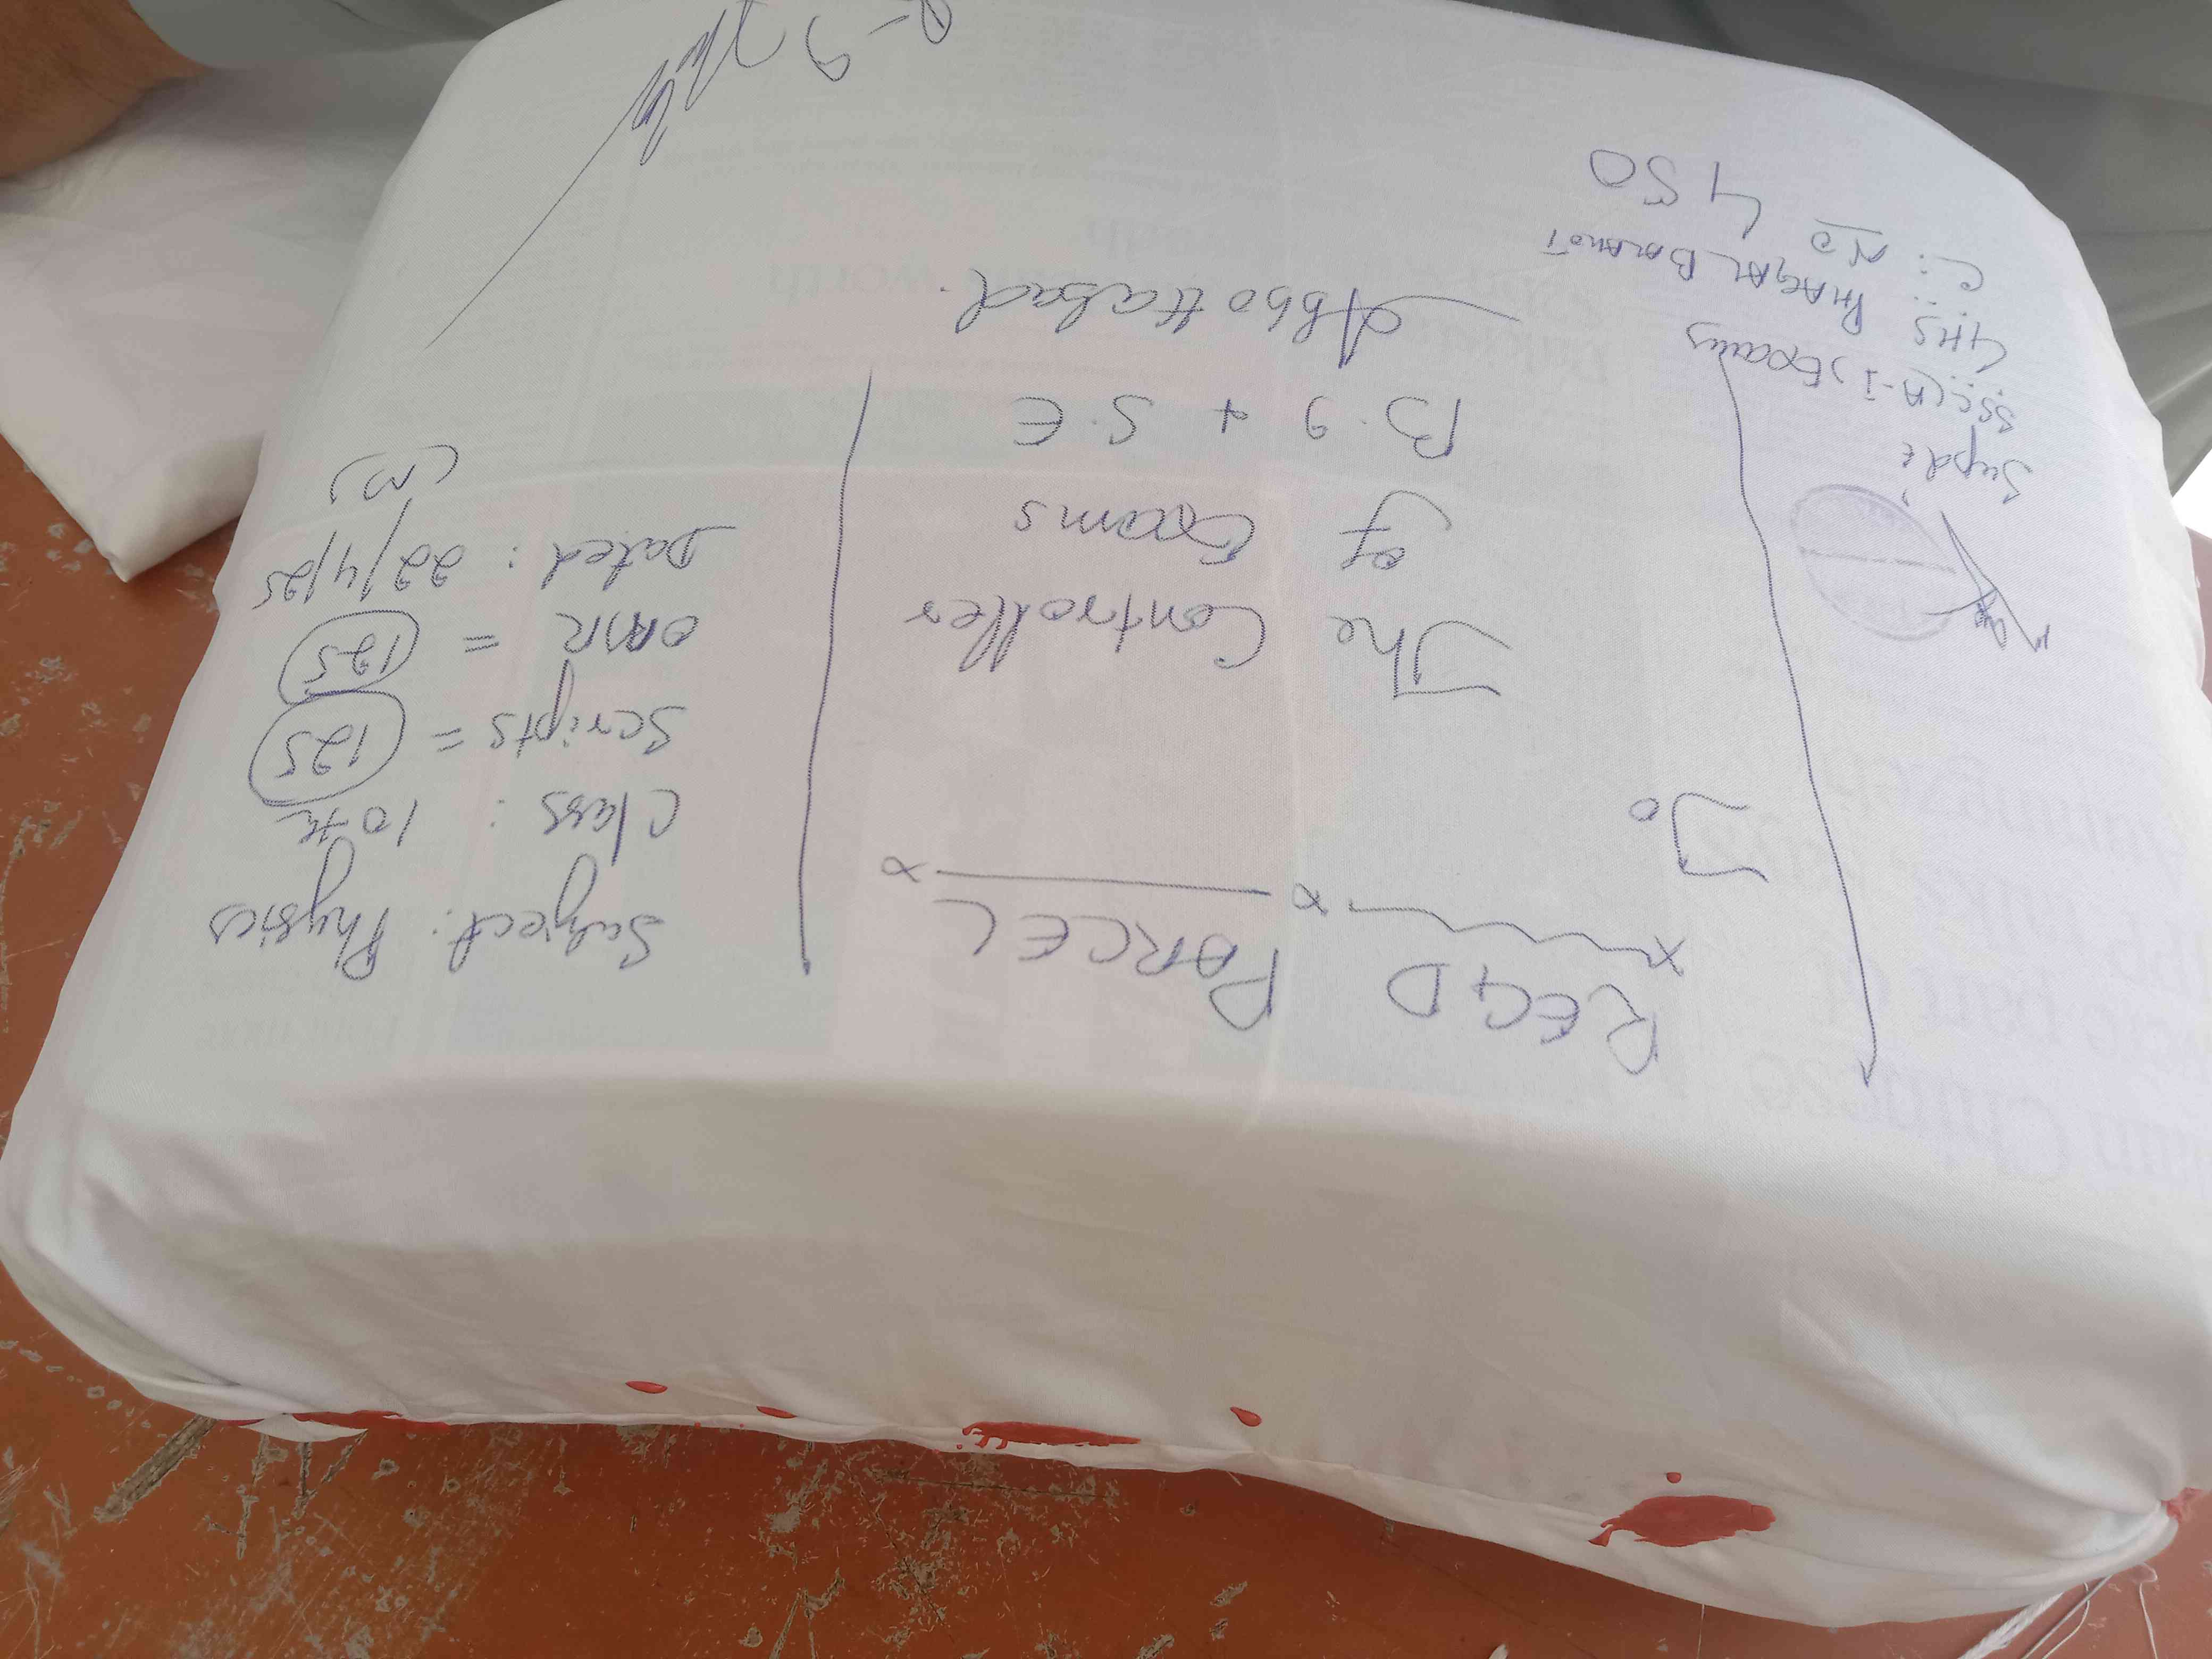 REGD PARCEL
To
The Controller
of Exams
B.I & S.E
Abbottabad.
Subject: Physics
Class: 10th
Scripts = 125
OMR = 125
Dated: 22/4/25
(M)
Supdt
SSC(A-I) Exams
GHS PHAGAL BARANOT
C: No 450